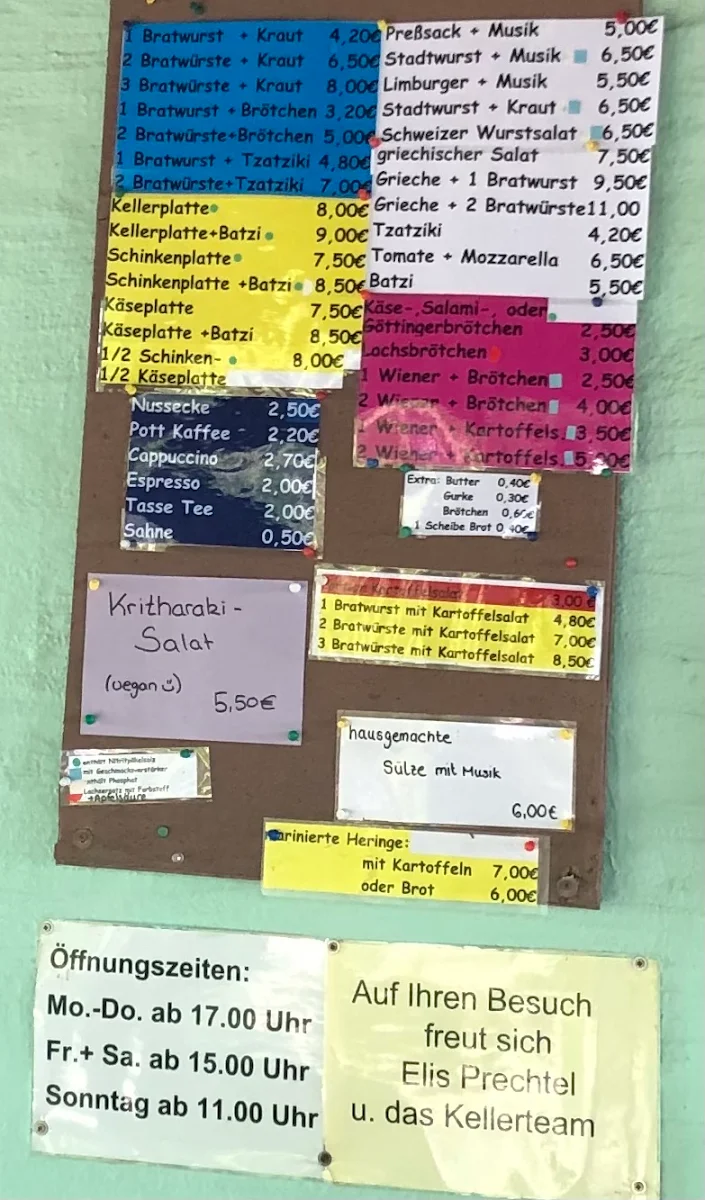 1 Bratwurst + Kraut 4,20€
2 Bratwürste + Kraut 6,50€
3 Bratwürste + Kraut 8,00€
1 Bratwurst + Brötchen 3,20€
2 Bratwürste+Brötchen 5,00€
1 Bratwurst + Tzatziki 4,80€
2 Bratwürste+Tzatziki 7,00€
Kellerplatte 8,00€
Kellerplatte+Batzi 9,00€
Schinkenplatte 7,50€
Schinkenplatte +Batzi 8,50€
Käseplatte 7,50€
Käseplatte +Batzi 8,50€
1/2 Schinken- 8,00€
1/2 Käseplatte
Preßsack + Musik 5,00€
Stadtwurst + Musik 6,50€
Limburger + Musik 5,50€
Stadtwurst + Kraut 6,50€
Schweizer Wurstsalat 6,50€
griechischer Salat 7,50€
Grieche + 1 Bratwurst 9,50€
Grieche + 2 Bratwürste 11,00
Tzatziki 4,20€
Tomate + Mozzarella 6,50€
Batzi 5,50€
Käse-,Salami-, oder
Göttingerbrötchen 2,50€
Lachsbrötchen 3,00€
1 Wiener + Brötchen 2,50€
2 Wiener + Brötchen 4,00€
1 Wiener + Kartoffels. 3,50€
2 Wiener + Kartoffels. 5,00€
Nussecke 2,50€
Pott Kaffee 2,20€
Cappuccino 2,70€
Espresso 2,00€
Tasse Tee 2,00€
Sahne 0,50€
Extra: Butter 0,40€
Gurke 0,30€
Brötchen 0,60€
1 Scheibe Brot 0,40€
Kritharaki-
Salat
(vegan ü)
5,50€
Kartoffelsalat 3,00€
1 Bratwurst mit Kartoffelsalat 4,80€
2 Bratwürste mit Kartoffelsalat 7,00€
3 Bratwürste mit Kartoffelsalat 8,50€
enthält Nitritpökelsalz
mit Geschmacksverstärker
enthält Phosphat
Lachsersatz mit Farbstoff
+Apfelsäure
hausgemachte
Sülze mit Musik
6,00€
Marinierte Heringe:
mit Kartoffeln 7,00€
oder Brot 6,00€
Öffnungszeiten:
Mo.-Do. ab 17.00 Uhr
Fr.+ Sa. ab 15.00 Uhr
Sonntag ab 11.00 Uhr
Auf Ihren Besuch
freut sich
Elis Prechtel
u. das Kellerteam